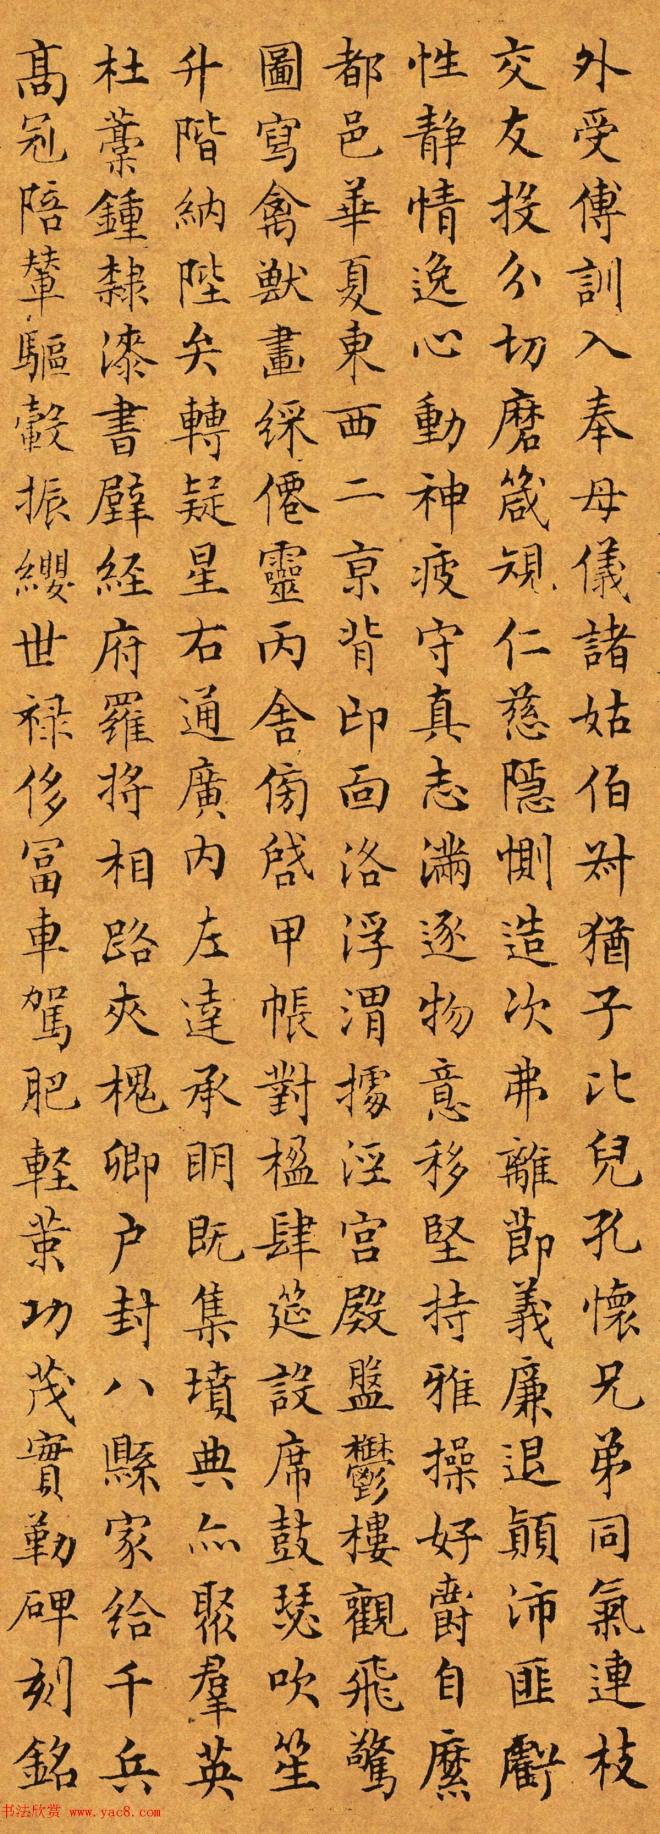 外受傅訓入奉母儀諸姑伯叔猶子比兒孔懷兄弟同氣連枝
交友投分切磨箴規仁慈隱惻造次弗離節義廉退顛沛匪虧
性靜情逸心動神疲守真志滿逐物意移堅持雅操好爵自縻
都邑華夏東西二京背邙面洛浮渭據涇宮殿盤鬱樓觀飛驚
圖寫禽獸畫綵僊靈丙舍傍啓甲帳對楹肆筵設席鼓瑟吹笙
升階納陛矣轉疑星右通廣內左達承明既集墳典亦聚羣英
杜藁鍾隸漆書壁経府羅將相路夾槐卿户封八縣家給千兵
髙冠陪輦驅轂振纓世禄侈富車駕肥軽策功茂實勒碑刻銘
书法欣赏 www.yac8.com